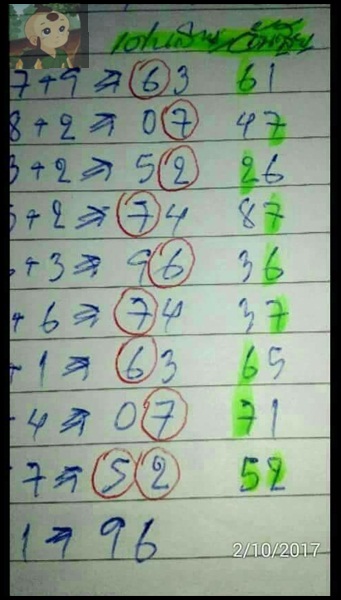 7+9 ⇒ 63 61
8+2 ⇒ 07 47
3+2 ⇒ 52 26
5+2 ⇒ 74 87
+3 ⇒ 96 36
+6 ⇒ 74 37
+1 ⇒ 63 65
4 ⇒ 07 71
7 ⇒ 52 52
1 ⇒ 96
2/10/2017